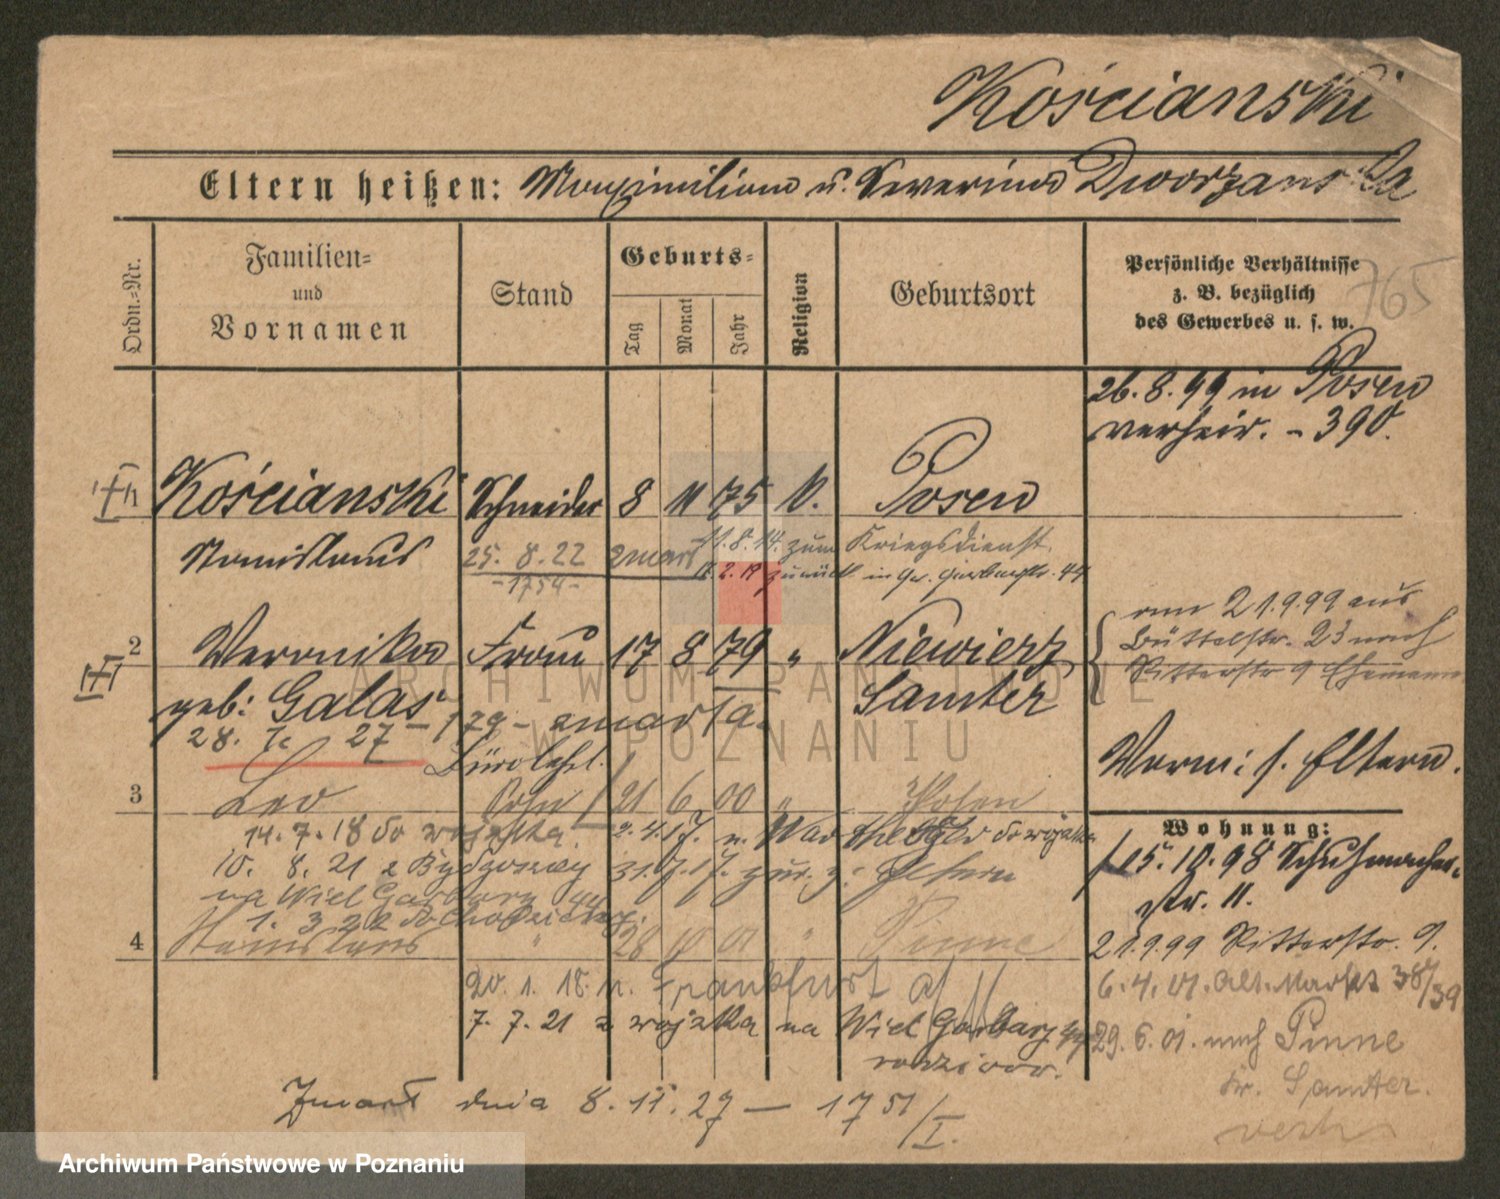 Kościanski
Eltern heißen: Maximilian u. Severina Dworzanska
Ordn.=Nr.
Familien=
und
Vornamen
Stand
Geburts=
Tag
Monat
Jahr
Religion
Geburtsort
Persönliche Verhältnisse
z. B. bezüglich
des Gewerbes u. s. w.
765
26. 8. 99 in Posen
verheir. - 390.
Kościanski Schneider 8 11 75 k. Posen
Stanislaus 25. 8. 22 zmarł 11. 8. 14. zum Kriegsdienst
-1754-
2. 19 zurück in Gr. Gerberstr. 44
2 Veronika Frau 17 8 79 " Niewierz
geb: Galas Samter
28. 7. 27 - 179 - zmarła.
vom 21.9.99 aus
Büttelstr. 23 nach
Ritterstr 9 Ehemann
Vorm: s. Eltern.
Bürolehrl.
3 Leo Sohn 21 6 00 " Posen
14. 7. 18 do wojska. 2. 4. 17. n. do wojska
10. 8. 21 z Bydgoszczy 31. 7. 17. zur. z. Eltern
na Wiel Garbary 44
1. 3 22 do
4 Stanislaus " 28 10 01 " Pinne
20. 1. 18. n. Frankfurt a/
7. 7. 21 z wojska na Wiel Garbary 44
rodziców.
Zmarł dnia 8. 11. 27 — 1751/I.
Wohnung:
15. 10. 98 Schuhmacher-
str. 11.
21.9.99 Ritterstr. 9.
6. 4. 01. Alt. Markt 38/39
29. 6. 01. nach Pinne
Kr. Samter.
ARCHIWUM PAŃSTWOWE
W POZNANIU
Archiwum Państwowe w Poznaniu